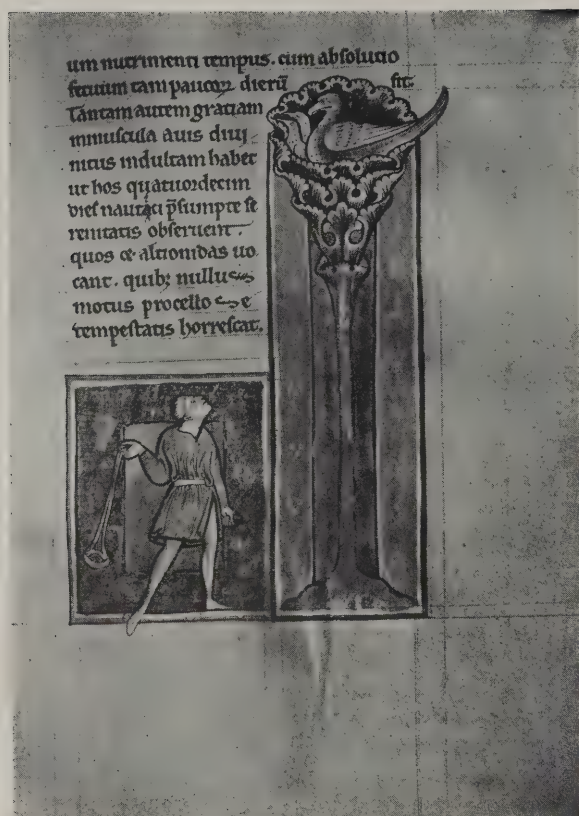 um nutrimenti tempus. cum absolutio
fetuum tam paucoꝝ dierū sit.
Tantam autem gratiam
minuscula auis diui
nitus indultam habet
ut hos quatuordecim
dies nautici p̄sumpte se
renitatis obseruent.
quos & alcionidas uo
cant. quibꝫ nullus
motus procellose
tempestatis horrescat.